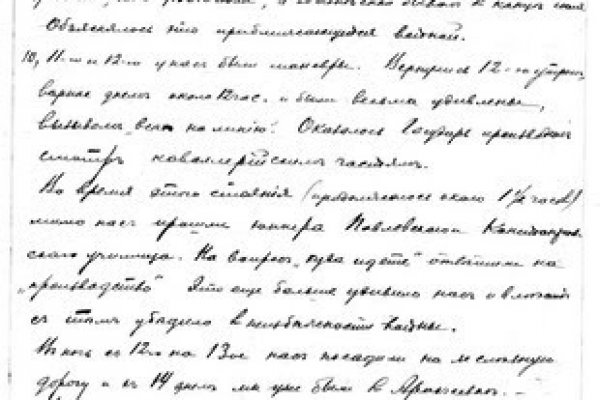 Объяснялось это приближающейся войной.
10, 11-го и 12-го у нас были маневры. Вернулись 12-го утром,
вернее днем около 12 час. и были весьма удивлены,
вызовом "всех на линию". Оказалось Государь производил
смотръ кавалерийским частям.
Во время этого стояния (продолжалось около 1 1/2 часов)
мимо нас прошли юнкера Павловского
ского училища. На вопрос "куда идете" ответили на
"производство" Это еще больше удивило нас и
с этим убедило в неизбежности войны.
В ночь с 12го на 13ое нас посадили на железную
дорогу и 14 днем мы уже были в